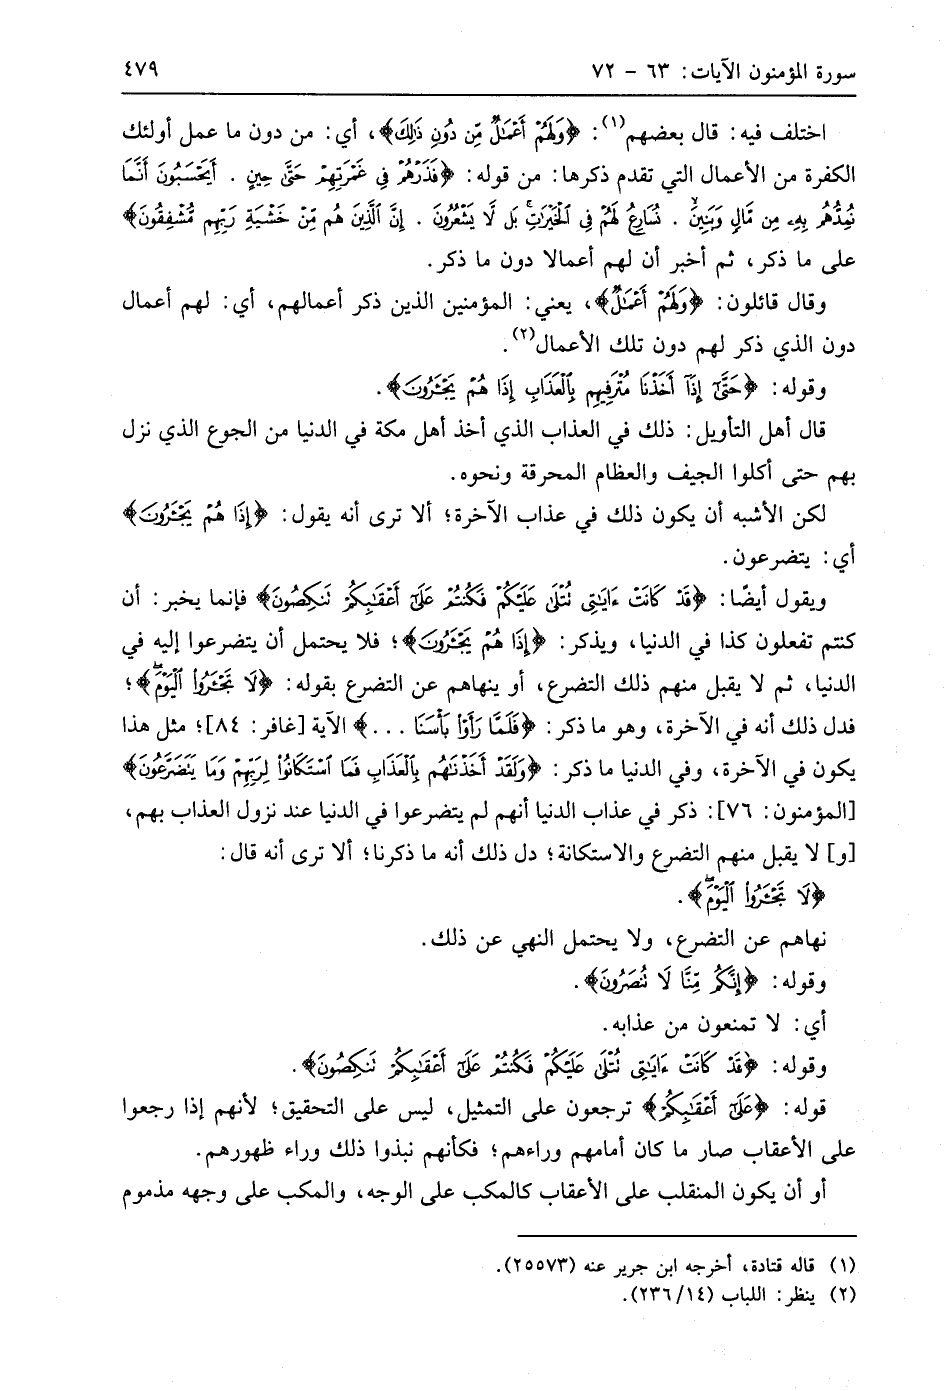 سورة المؤمنون الآيات: ٦٣ - ٧٢ ٤٧٩
اختلف فيه: قال بعضهم(١): ﴿وَلَهُمْ أَعْمَٰلٌ مِّن دُونِ ذَٰلِكَ﴾، أي: من دون ما عمل أولئك
الكفرة من الأعمال التي تقدم ذكرها: من قوله: ﴿فَذَرْهُمْ فِى غَمْرَتِهِمْ حَتَّىٰ حِينٍ . أَيَحْسَبُونَ أَنَّمَا
نُمِدُّهُم بِهِۦ مِن مَّالٍ وَبَنِينَ . نُسَارِعُ لَهُمْ فِى ٱلْخَيْرَٰتِ بَل لَّا يَشْعُرُونَ . إِنَّ ٱلَّذِينَ هُم مِّنْ خَشْيَةِ رَبِّهِم مُّشْفِقُونَ﴾
على ما ذكر، ثم أخبر أن لهم أعمالا دون ما ذكر.
وقال قائلون: ﴿وَلَهُمْ أَعْمَٰلٌ﴾، يعني: المؤمنين الذين ذكر أعمالهم، أي: لهم أعمال
دون الذي ذكر لهم دون تلك الأعمال(٢).
وقوله: ﴿حَتَّىٰٓ إِذَآ أَخَذْنَا مُتْرَفِيهِم بِٱلْعَذَابِ إِذَا هُمْ يَجْـَٔرُونَ﴾.
قال أهل التأويل: ذلك في العذاب الذي أخذ أهل مكة في الدنيا من الجوع الذي نزل
بهم حتى أكلوا الجيف والعظام المحرقة ونحوه.
لكن الأشبه أن يكون ذلك في عذاب الآخرة؛ ألا ترى أنه يقول: ﴿إِذَا هُمْ يَجْـَٔرُونَ﴾
أي: يتضرعون.
ويقول أيضًا: ﴿قَدْ كَانَتْ ءَايَٰتِى تُتْلَىٰ عَلَيْكُمْ فَكُنتُمْ عَلَىٰٓ أَعْقَٰبِكُمْ تَنكِصُونَ﴾ فإنما يخبر: أن
كنتم تفعلون كذا في الدنيا، ويذكر: ﴿إِذَا هُمْ يَجْـَٔرُونَ﴾؛ فلا يحتمل أن يتضرعوا إليه في
الدنيا، ثم لا يقبل منهم ذلك التضرع، أو ينهاهم عن التضرع بقوله: ﴿لَا تَجْـَٔرُوا۟ ٱلْيَوْمَ﴾؛
فدل ذلك أنه في الآخرة، وهو ما ذكر: ﴿فَلَمَّا رَأَوْا۟ بَأْسَنَا ...﴾ الآية [غافر: ٨٤]؛ مثل هذا
يكون في الآخرة، وفي الدنيا ما ذكر: ﴿وَلَقَدْ أَخَذْنَٰهُم بِٱلْعَذَابِ فَمَا ٱسْتَكَانُوا۟ لِرَبِّهِمْ وَمَا يَتَضَرَّعُونَ﴾
[المؤمنون: ٧٦]: ذكر في عذاب الدنيا أنهم لم يتضرعوا في الدنيا عند نزول العذاب بهم،
[و] لا يقبل منهم التضرع والاستكانة؛ دل ذلك أنه ما ذكرنا؛ ألا ترى أنه قال:
﴿لَا تَجْـَٔرُوا۟ ٱلْيَوْمَ﴾.
نهاهم عن التضرع، ولا يحتمل النهي عن ذلك.
وقوله: ﴿إِنَّكُم مِّنَّا لَا تُنصَرُونَ﴾.
أي: لا تمنعون من عذابه.
وقوله: ﴿قَدْ كَانَتْ ءَايَٰتِى تُتْلَىٰ عَلَيْكُمْ فَكُنتُمْ عَلَىٰٓ أَعْقَٰبِكُمْ تَنكِصُونَ﴾.
قوله: ﴿عَلَىٰٓ أَعْقَٰبِكُمْ﴾ ترجعون على التمثيل، ليس على التحقيق؛ لأنهم إذا رجعوا
على الأعقاب صار ما كان أمامهم وراءهم؛ فكأنهم نبذوا ذلك وراء ظهورهم.
أو أن يكون المنقلب على الأعقاب كالمكب على الوجه، والمكب على وجهه مذموم
(١) قاله قتادة، أخرجه ابن جرير عنه (٢٥٥٧٣).
(٢) ينظر: اللباب (٢٣٦/١٤).